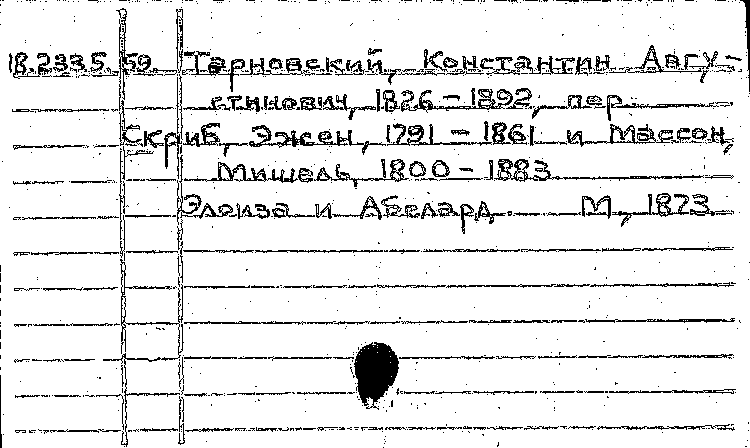 18.233.5.59. Тарновский, Константин Авгу-
стинович, 1826-1892, пер.
Скриб, Эжен, 1791-1861 и Массон,
Мишель, 1800-1883
Элоиза и Абелард. М., 1873.